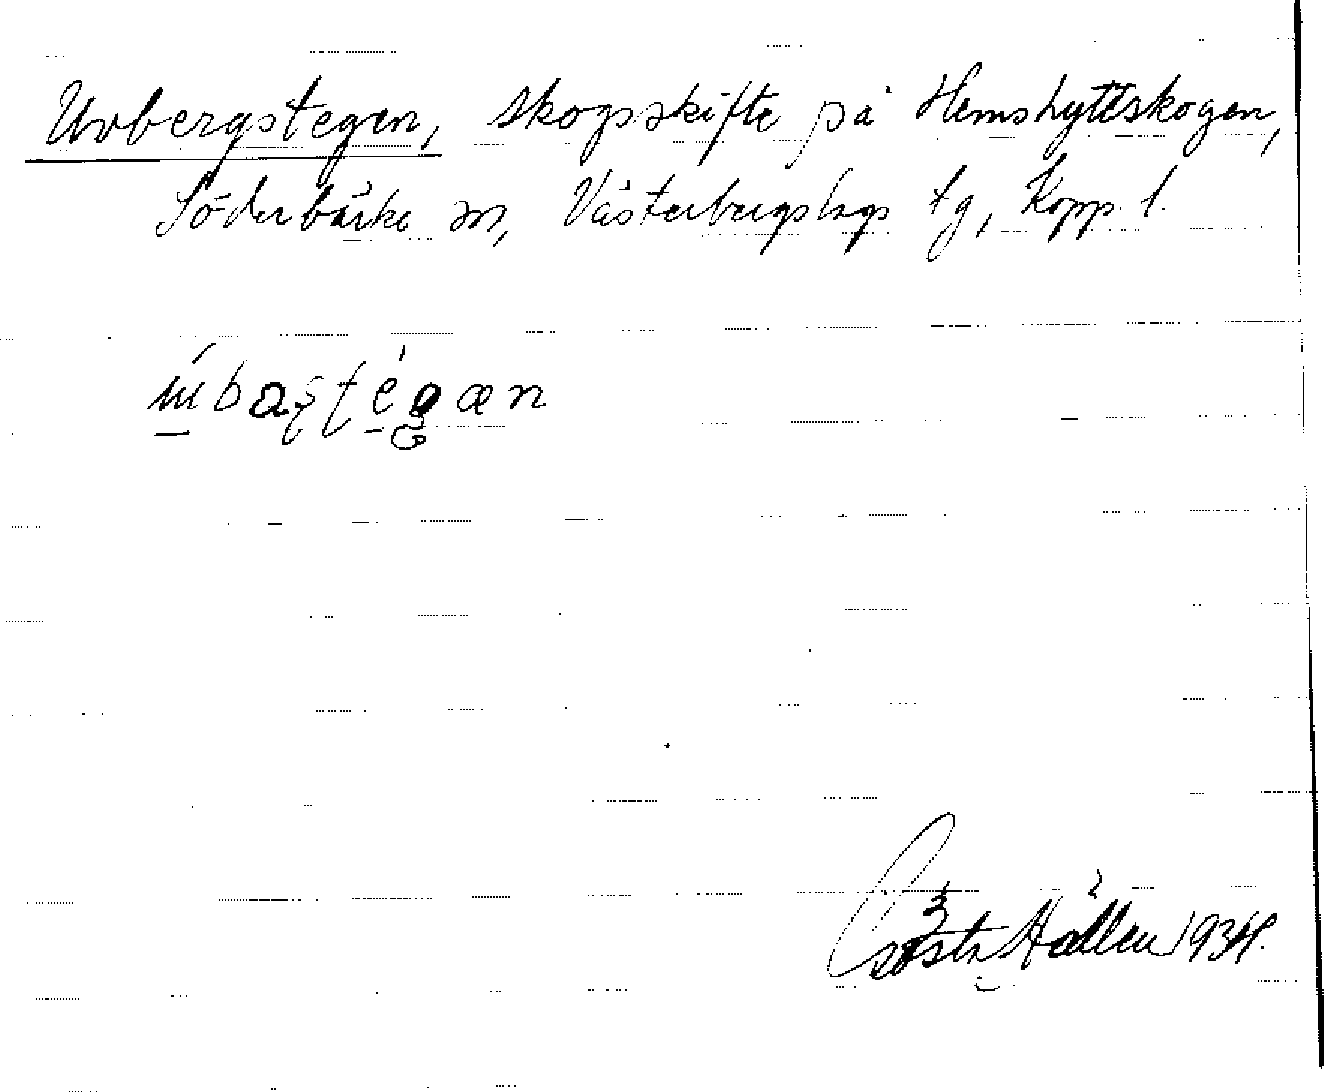 Uvbergstegen, skogsskifte på Hemshytteskogen,
Söderbärke sn, Västerbergslags tg, Kopp. l.
Gösta Hållen 1934.